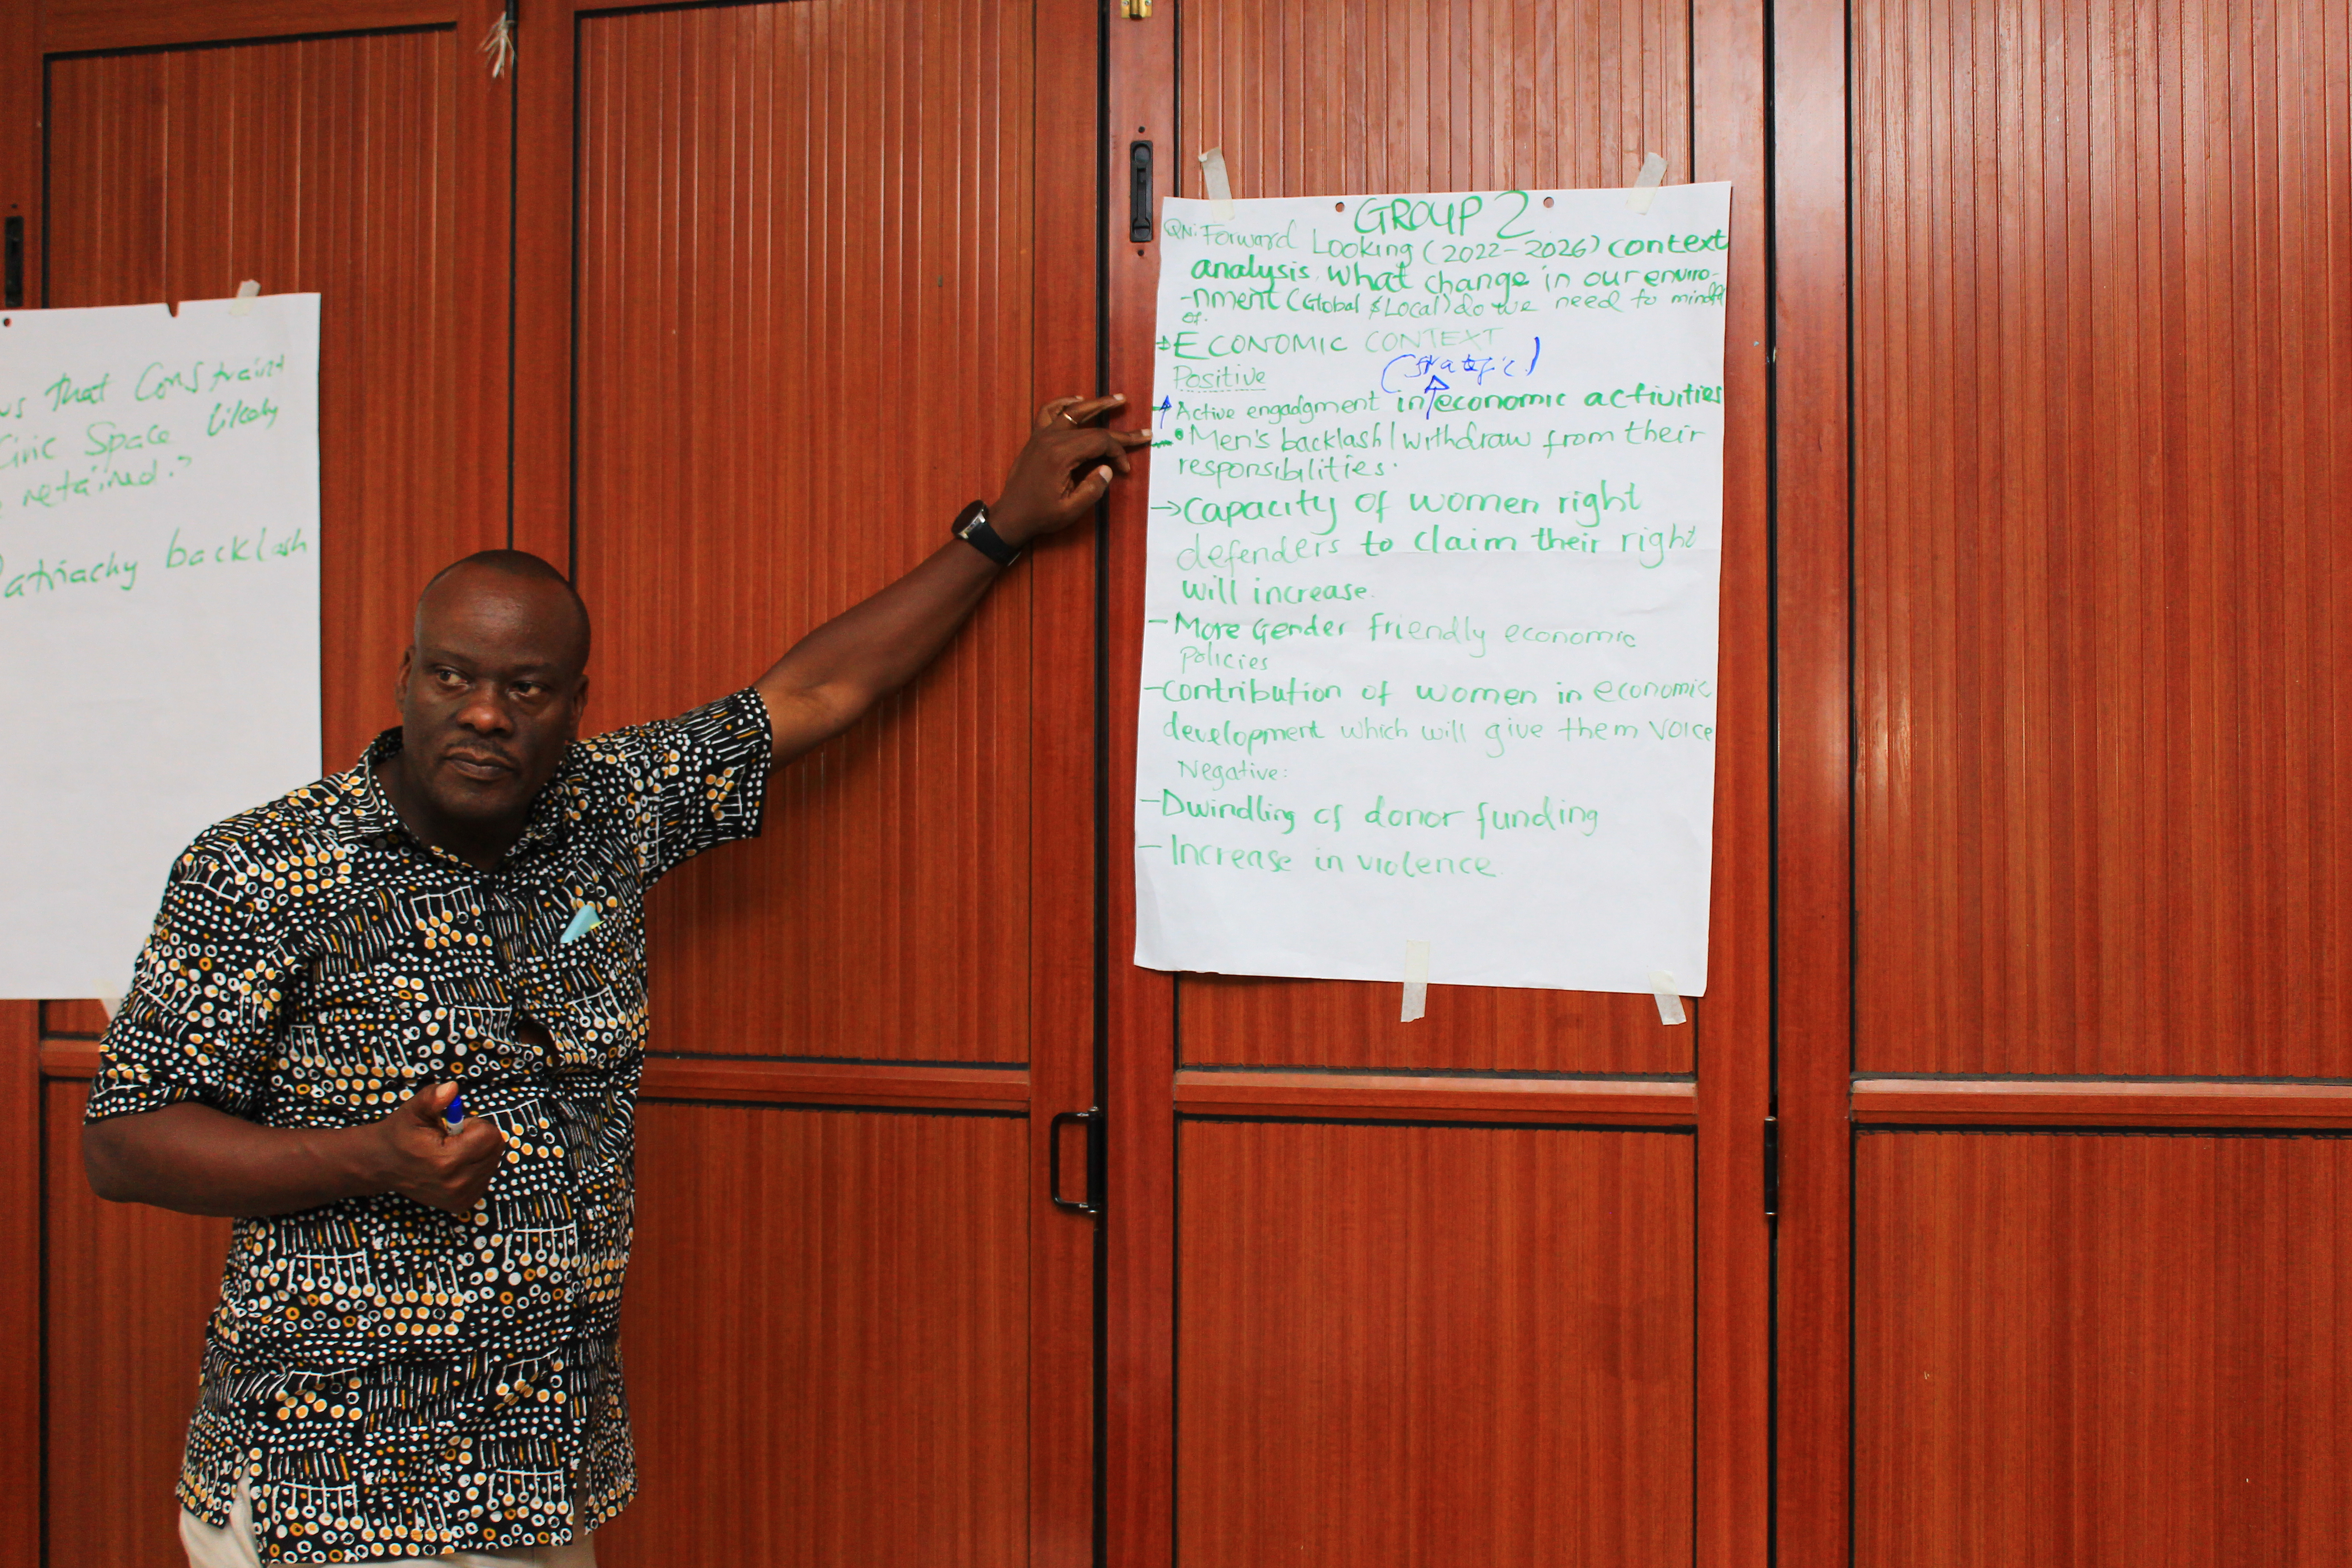 us that Constraint
Civic Space likely
retained?
atriachy backlash
GROUP 2
QN: Forward Looking (2022-2026) context
analysis. What change in our enviro-
-nment (Global & Local) do we need to mindful
of.
→ ECONOMIC CONTEXT
(strategic)
Positive
Active engadgment in economic activities
• Men's backlash/withdraw from their
responsibilities.
→ Capacity of women right
defenders to claim their right
will increase.
- More Gender friendly economic
policies
- contribution of women in economic
development which will give them voice
Negative:
- Dwindling of donor funding
- Increase in violence.